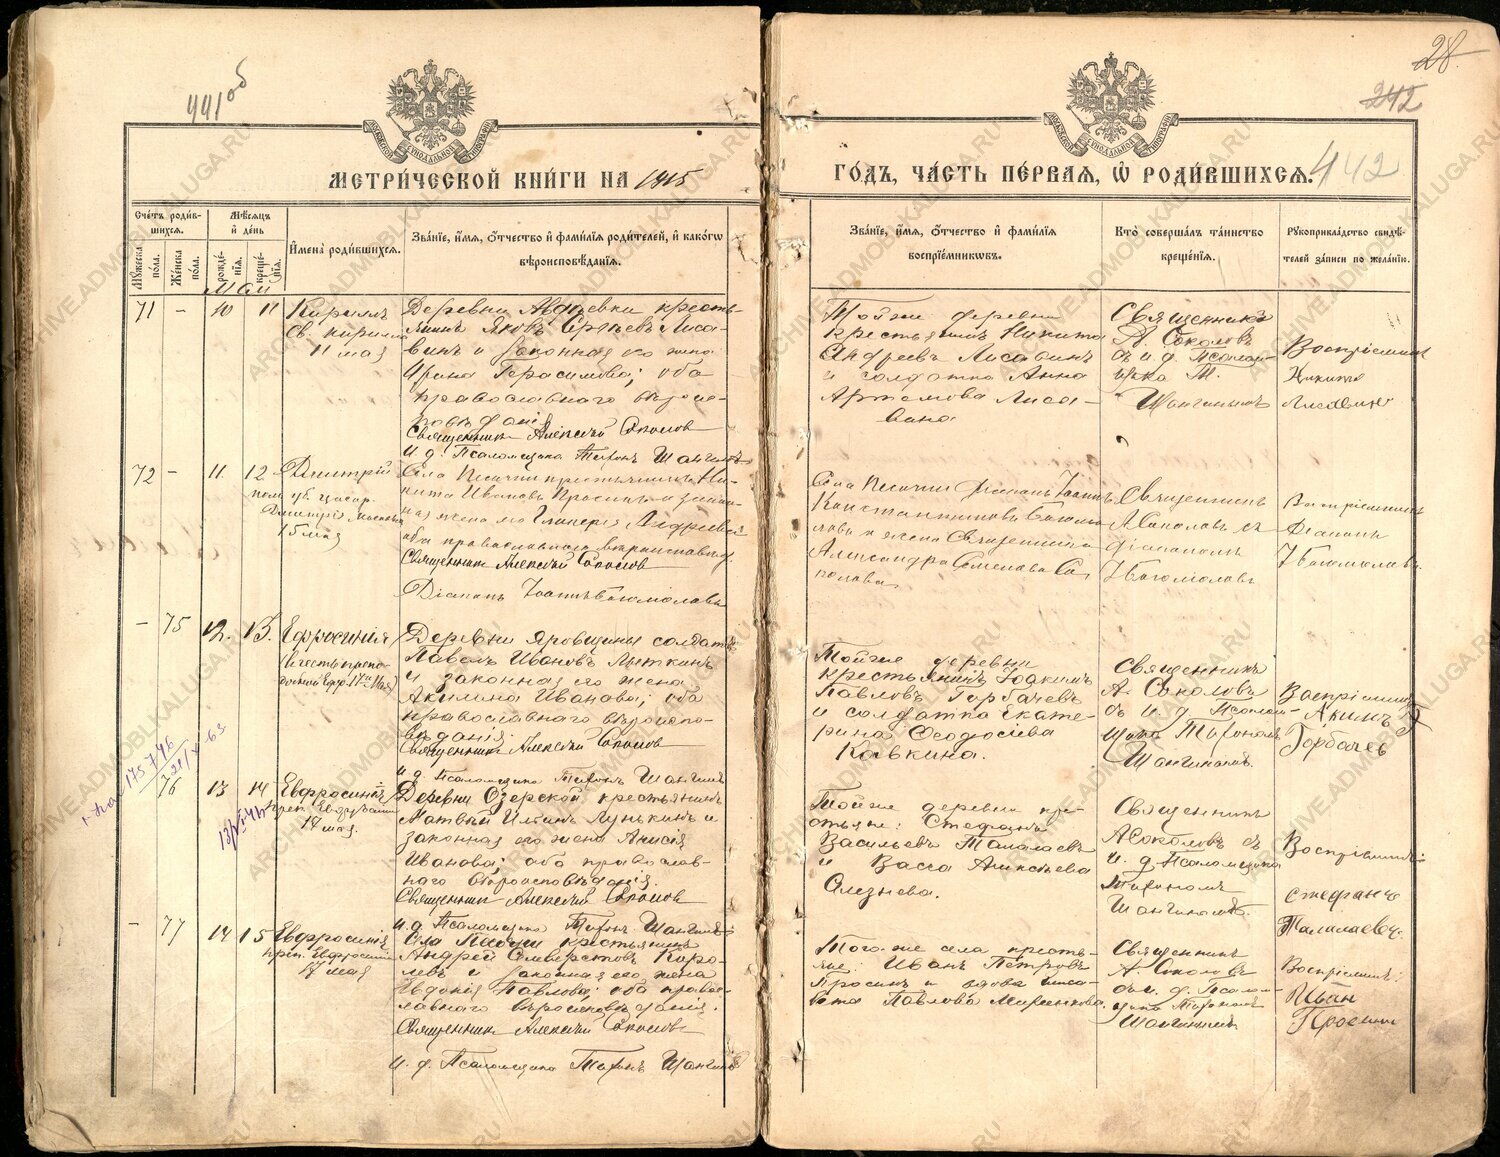 441об
28
242
442
МЕТРИ́ЧЕСКОЙ КНИ́ГИ НА 1915
ГО́ДЪ, ЧА́СТЬ ПЕ́РВАЯ, Ѡ҆ РОДИ́ВШИХСЯ.
МОСКОВСКОЙ СѴНОДАЛЬНОЙ ТИПОГРАФIИ
МОСКОВСКОЙ СѴНОДАЛЬНОЙ ТИПОГРАФIИ
Сче́тъ роди́вшихся.
Мѣ́сяцъ и҆ де́нь
Му́жеска по́ла.
Же́нска по́ла.
рожде́нія.
креще́нія.
И҆мена̀ роди́вшихся.
Зва́ніе, и҆́мя, ѻ҆́тчество и҆ фами́лія роди́телей, и҆ како́гѡ вѣроисповѣ́данія.
Зва́ніе, и҆́мя, ѻ҆́тчество и҆ фами́лія воспріе́мникѡвъ.
Кто̀ соверша́лъ та́инство креще́нія.
Рꙋкоприкла́дство свидѣ́телей за́писи по жела́нію.
Май
71 – 10 11
Кириллъ
св. Кирилла
11 мая
Деревни Авдѣевки кресть-
янинъ Яковъ Сергѣевъ Лиса-
винъ и законная его жена
Ирина Герасимова; оба
православнаго вѣроис-
повѣданія
Священникъ Алексѣй Соколовъ
И. д. Псаломщика Тихонъ Шангинъ
Тойже деревни
крестьянинъ Никита
Андреевъ Лисавинъ
и солдатка Анна
Артемова Лиса-
вина
Священникъ
А. Соколовъ
съ и. д. Псалом-
щика Т.
Шангинымъ
Воспріемникъ
Никита
Лисавинъ
72 – 11 12
Дмитрій
15 мая
Села Песочни крестьянинъ Ни-
кита Ивановъ Просинъ и закон-
ная жена его Гликерія Андреева
оба православнаго вѣроисповѣд.
Священникъ Алексѣй Соколовъ
Діаконъ Іоаннъ Богомоловъ
Села Песочни Діаконъ Іоаннъ
Константиновъ Богомо-
ловъ и жена Священника
Александра Семенова Со-
колова
Священникъ
А Соколовъ съ
Діакономъ
І Богомоловъ
Воспріемникъ
Діаконъ
І Богомоловъ
– 75 12. 13.
Ефросинія
(в честь препо-
добной Евфр. 17го Мая)
Деревни Яровщины солдатъ
Павелъ Ивановъ Лыткинъ
и законная его жена
Акилина Иванова; оба
православнаго вѣроиспо-
вѣданія
Священникъ Алексѣй Соколовъ
И. д. Псаломщика Тихонъ Шангинъ
Тойже деревни
крестьянинъ Іоакимъ
Павловъ Горбачевъ
и солдатка Екате-
рина Ѳеодосіева
Кавкина.
Священникъ
А. Соколовъ
съ и. д Псалом-
щика Тихономъ
Шангинымъ.
Воспріемникъ
Акимъ
Горбачевъ
175746
21/X-63
13/VI-44
76 13 14
Евфросинія
17 мая.
Деревни Озерской крестьянинъ
Матвѣй Илiинъ Лунькинъ и
законная его жена Анисія
Иванова; оба православ-
наго вѣроисповѣданія
Священникъ Алексѣй Соколовъ
И. д. Псаломщика Тихонъ Шангинъ
Тойже деревни кре-
стьяне: Стефанъ
Васильевъ Талалаевъ
и Васса Алексѣева
Слезнева.
Священникъ
А Соколовъ съ
и. д Псаломщика
Тихономъ
Шангинымъ.
Воспріемникъ
Стефанъ
Талалаевъ.
– 77 14 15
Евфросинія
преп. Евфросиніи
17 мая
Села Песочни крестьянинъ
Андрей Селиверстовъ Коро-
левъ и законная его жена
Евдокія Павлова; оба право-
славнаго вѣроисповѣданія.
Священникъ Алексѣй Соколовъ
И. д. Псаломщика Тихонъ Шангинъ
Тогоже села кресть-
яне: Иванъ Петровъ
Просинъ и вдова Елиса-
вета Павлова Миренкова.
Священникъ
А. Соколовъ
съ и. д. Псалом-
щика Тихономъ
Шангинымъ
Воспріемникъ:
Иван
Просинъ
ARCHIVE.ADMOBLKALUGA.RU